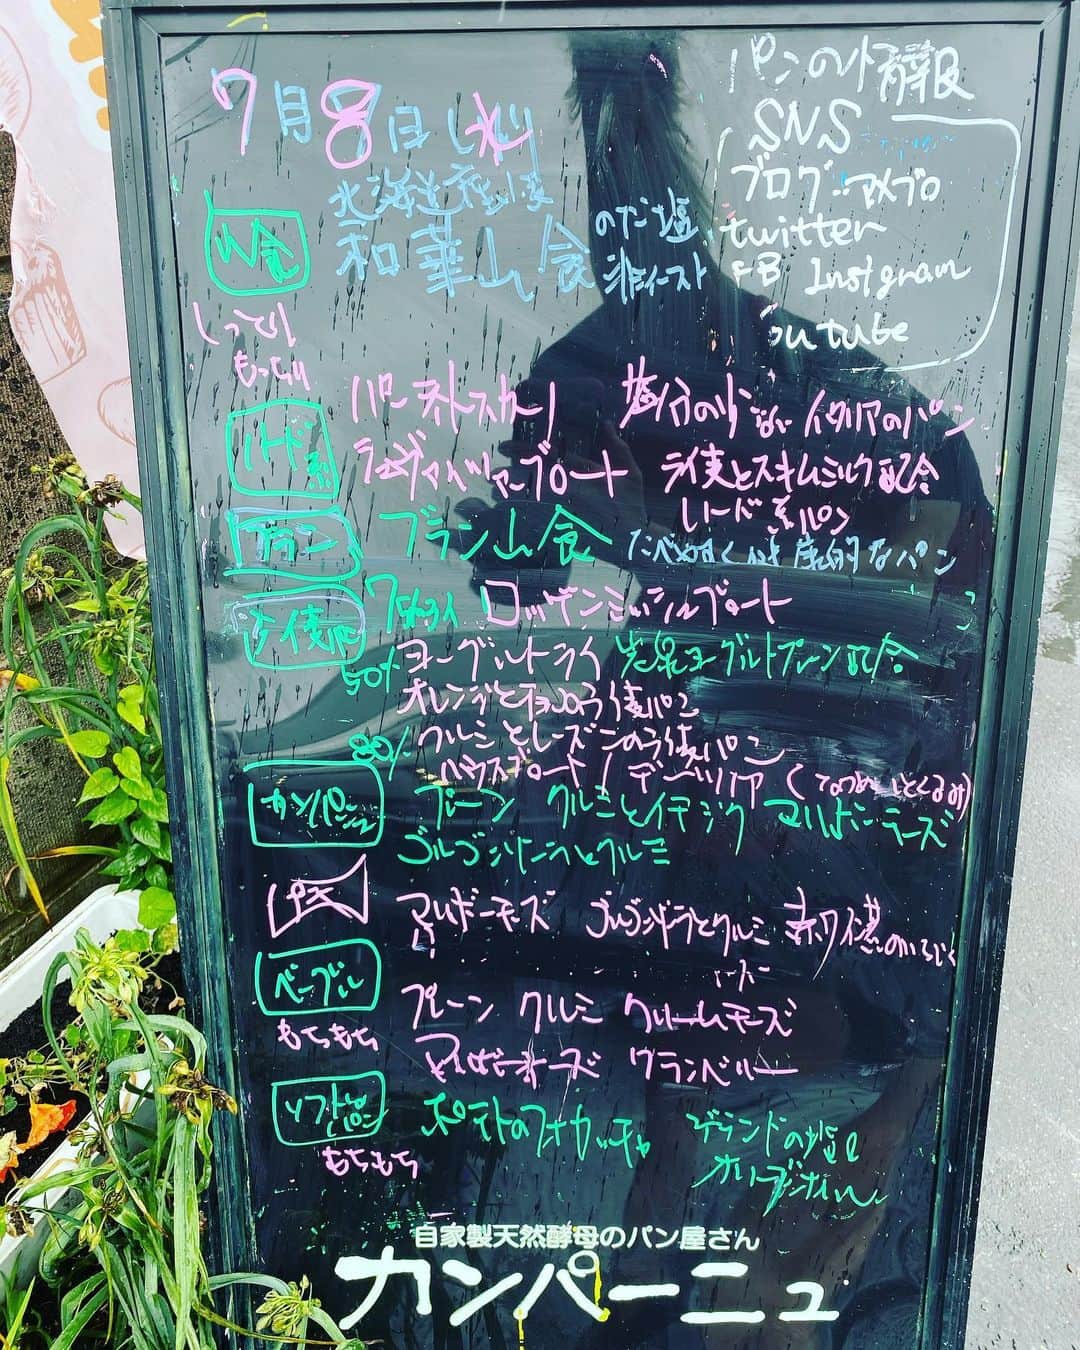 7月8日(水)
パンの情報
SNS
ブログ アメブロ
twitter
FB Instgram
Youtube
山食
北海道産
和華山食
のだ塩
非イースト
しっとり
もっちり
ハード系
パーネトスカーノ 塩分の少ないイタリアのパン
ブロート ライ麦とスキムミルク配合
ハード系パン
ブラン
ブラン山食 たべやすく なパン
ライ麦パン
ロッゲンミッシュブロート
50% ヨーグルトライ ヨーグルトプレーン配合
オレンジとチョコのライ麦パン
80% クルミとレーズンのライ麦パン
ハウスブロート
カンパーニュ
プレーン クルミとイチジク マルボーチーズ
ゴルゴンゾーラとクルミ
マルボーチーズ ゴルゴンゾーラとクルミ 赤ワイン煮のいちじく
ベーグル
もちもち
プレーン クルミ クリームチーズ
マルボーチーズ クランベリー
ソフトなパン
もちもち
ポテトのフォカッチャ ゲランドの塩と
オリーブオイル
自家製天然酵母のパン屋さん
カンパーニュ